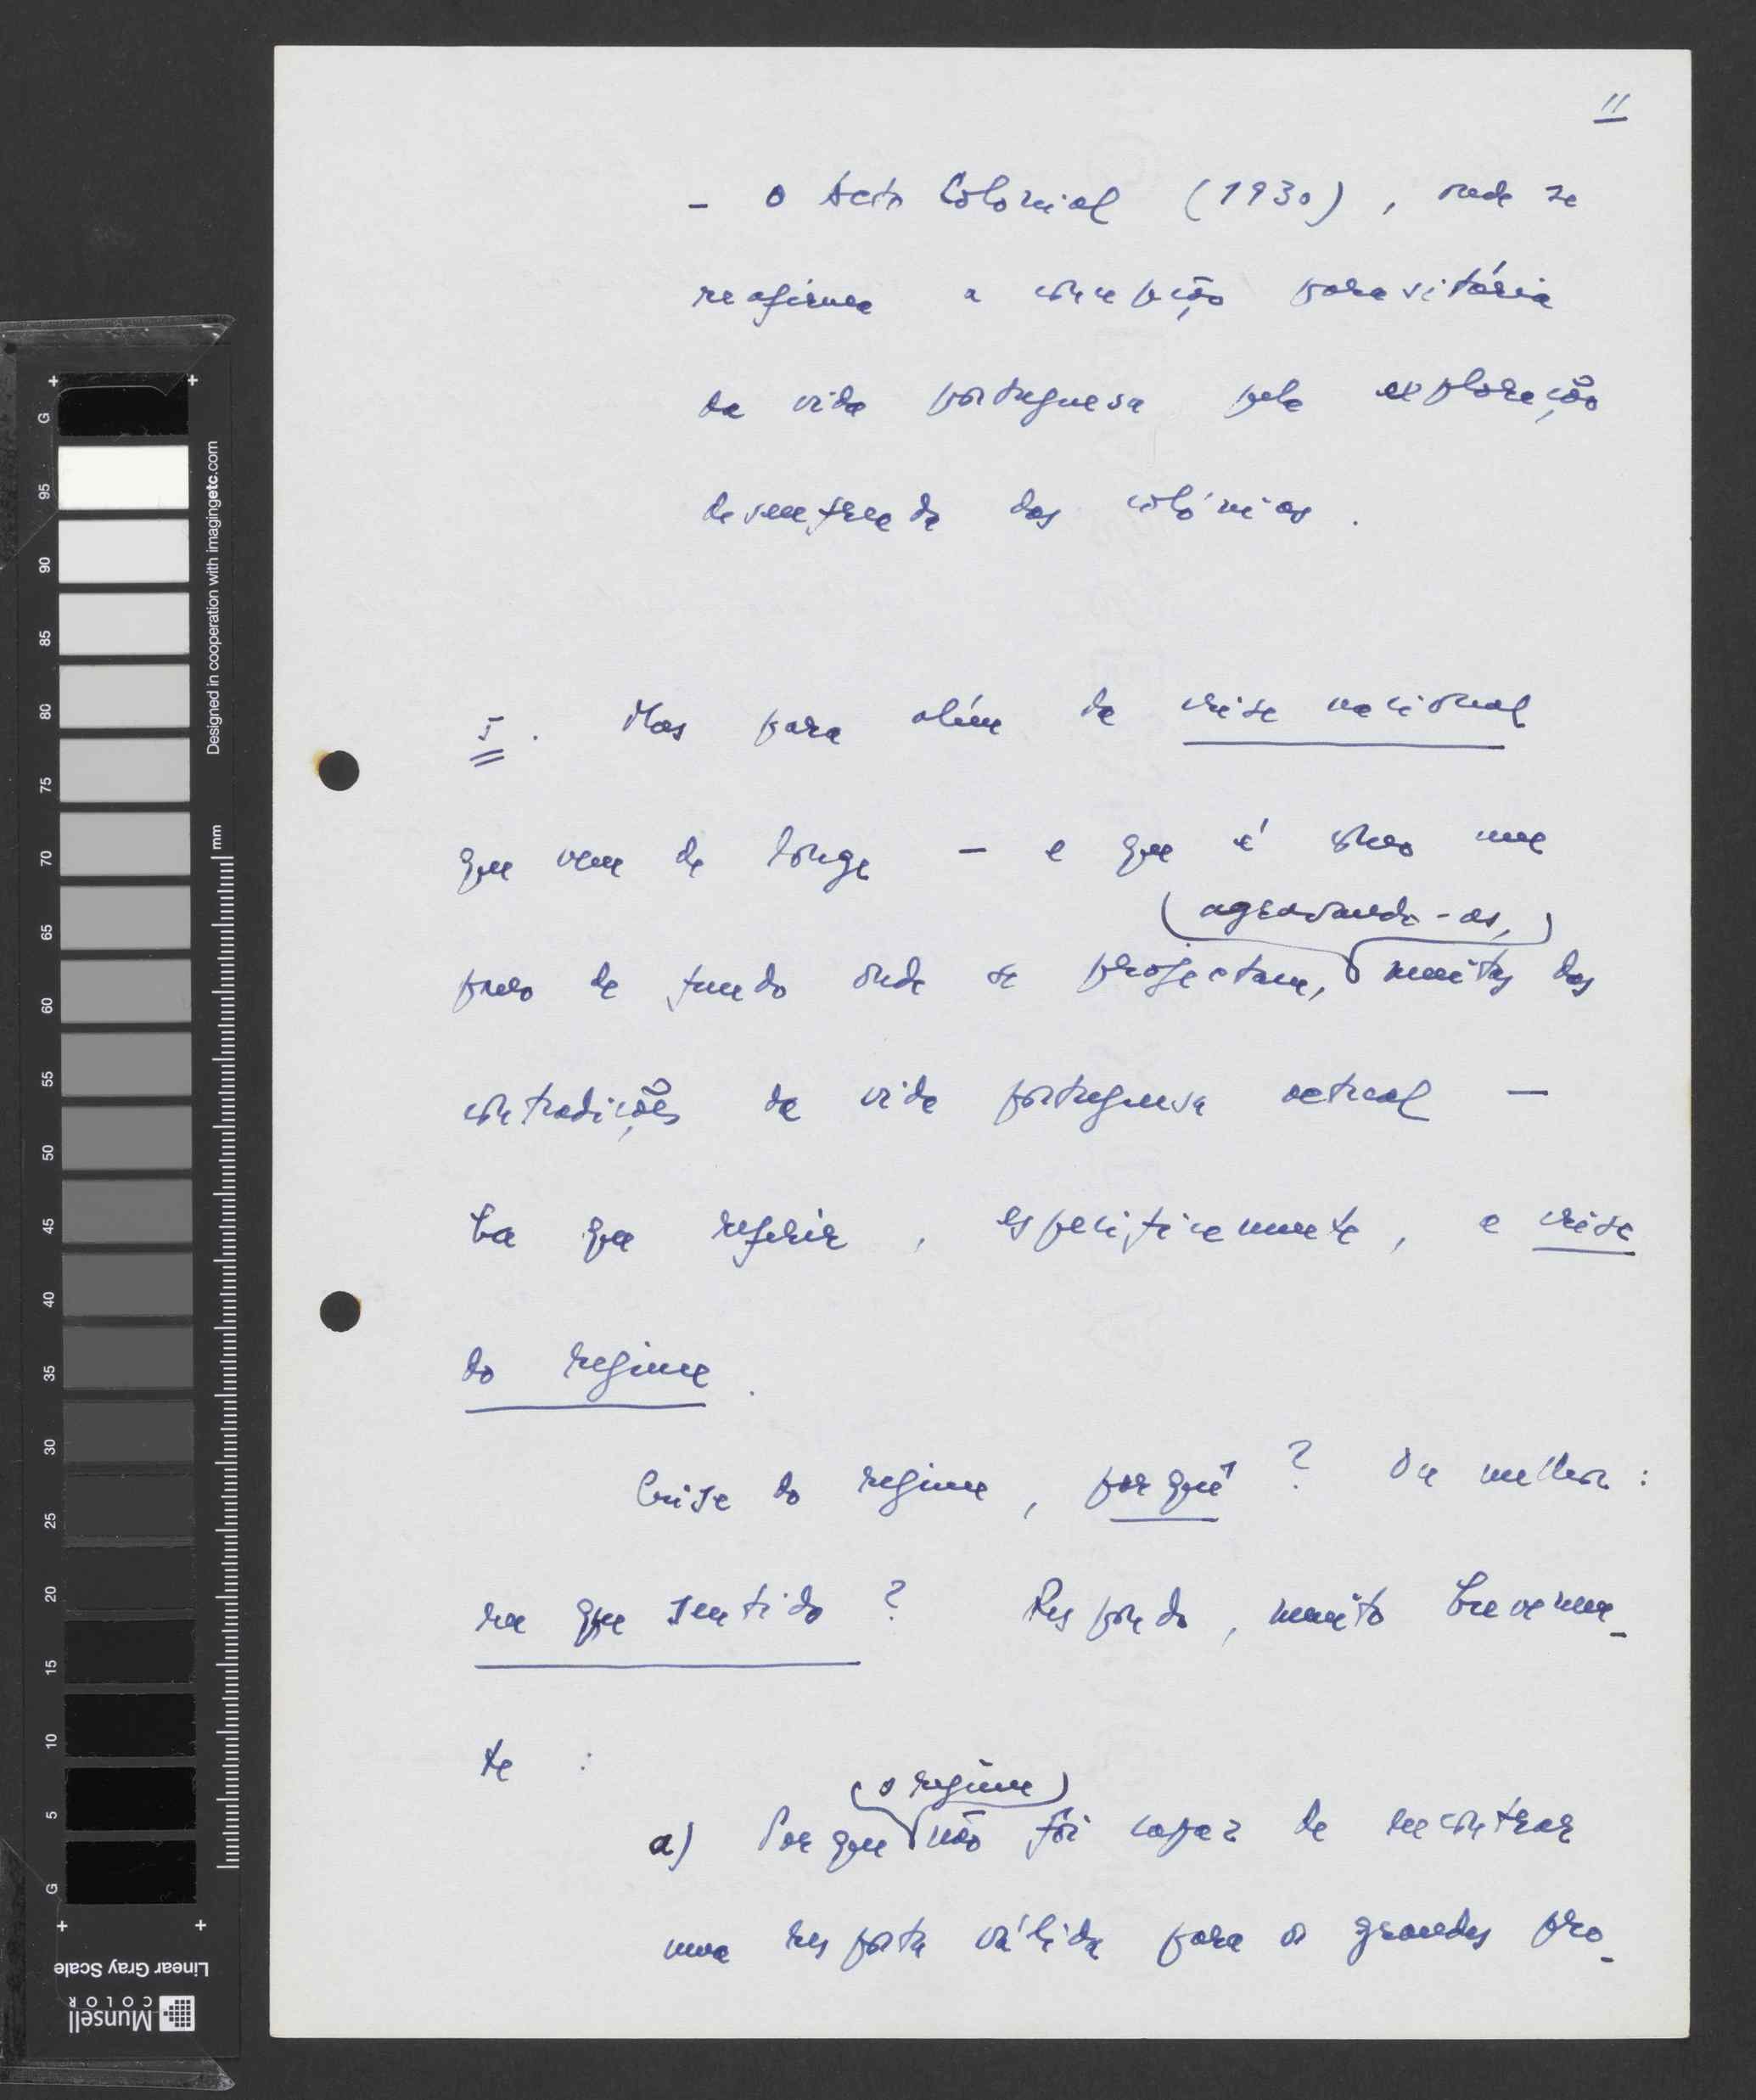 11
- O Acto Colonial (1930), onde se
reafirma a concepção parasitária
da vida portuguesa pela exploração
desenfreada das colónias.
5. Mas para além da crise nacional
que vem de longe - e que é como um
(agravando-as,)
pano de fundo onde se projectam, muitas das
contradições da vida portuguesa actual -
ha que referir, especificamente, a crise
do regime.
Crise do regime, porquê? Ou melhor:
em que sentido? Respondo, muito brevemen-
te:
(o regime)
a) Porque não foi capaz de encontrar
uma resposta válida para os grandes pro-
G 95 90 85 80 75 70 65 60 55 50 45 40 35 30 25 20 15 10 5 G
Designed in cooperation with imagingetc.com
mm
Linear Gray Scale
Munsell
COLOR